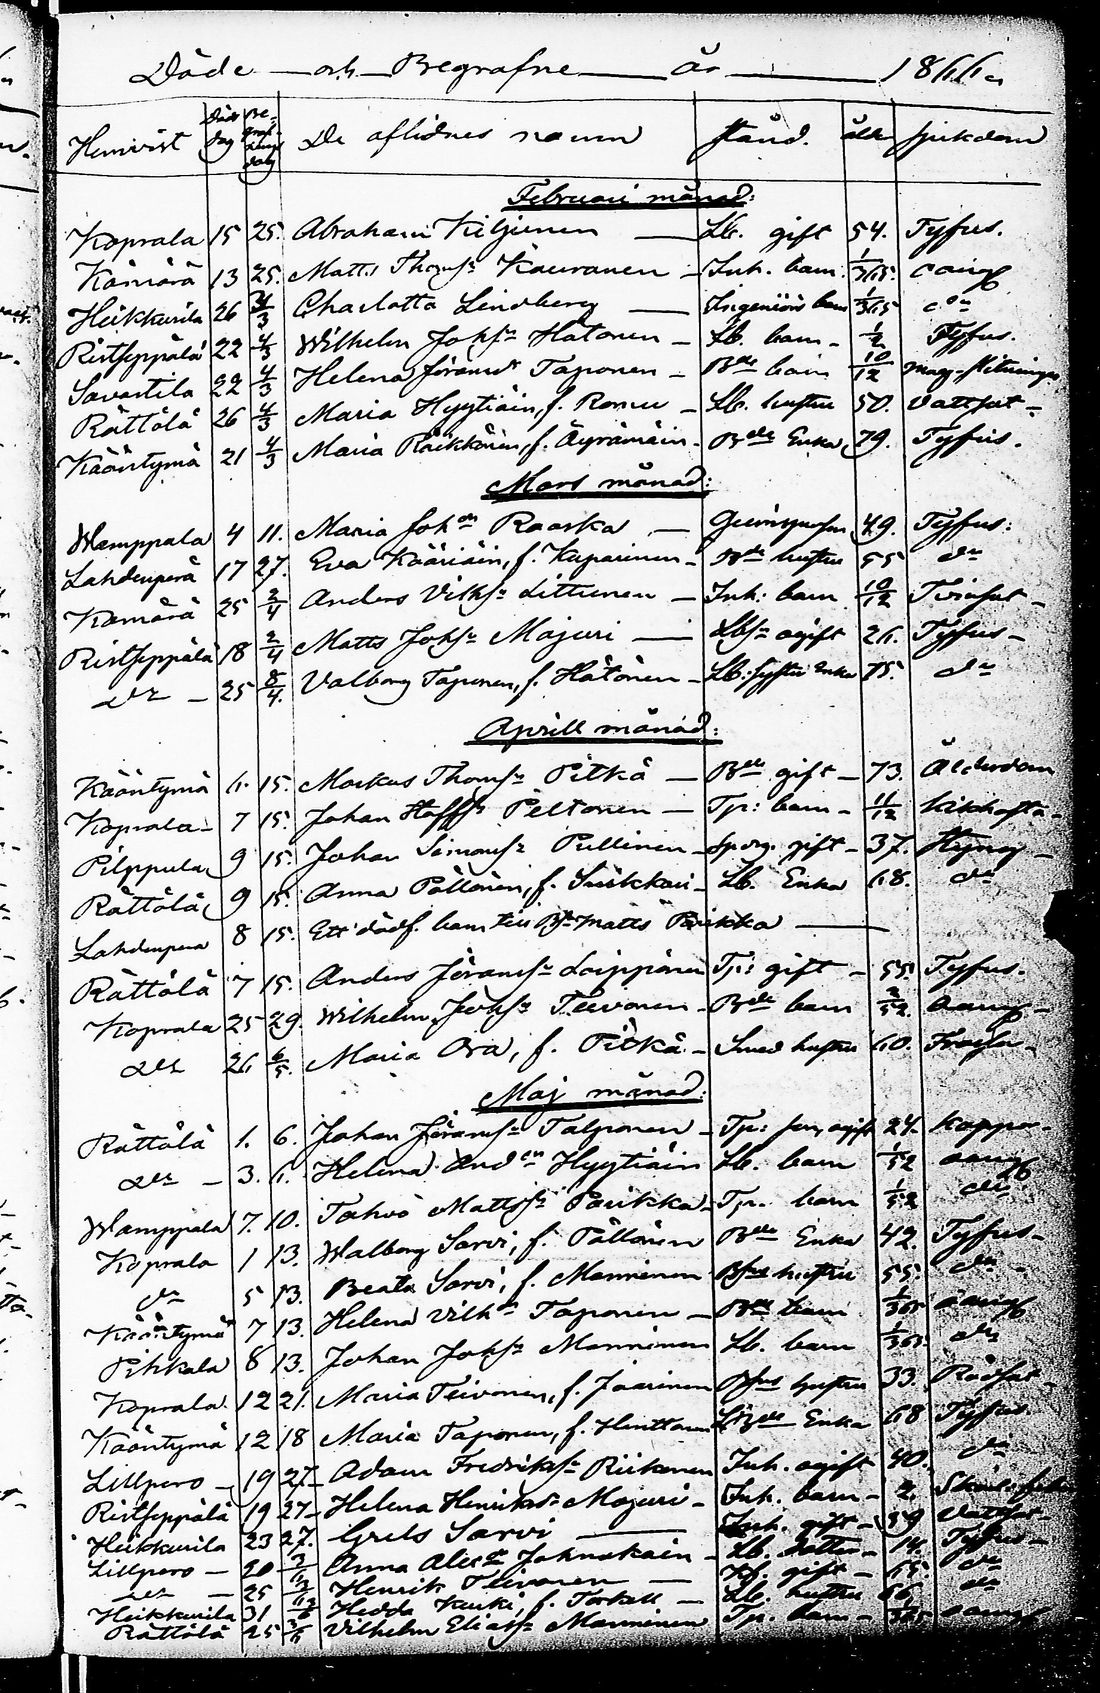 Döde och Begrafne år 1866.
Hemvist Döds dag Begrafnings dag De aflidnes namn Stånd. ålder Sjukdom
Februari månad:
Koprala 15 25. Abraham Kiljunen Lb. gift 54. Tyfus.
Kämärä 13 25. Matts Thomss. Kauranen Inh. barn 1/365
Heikkurila 26 4/3 Charlotta Lindberg Ingeniörs barn 1/365 do
Ristseppälä 22 4/3 Wilhelm Johs. Hätönen Lb. barn 1/2 Tyfus.
Savastila 22 4/3 Helena Göransdr Taponen Bde barn 10/12
Rättölä 26 4/3 Maria Hyytiäin, f. Romu Lb. hustru 50. Vattsot
Kääntymä 21 4/3 Maria Räikkönen, f. Äyrämäin Bde Enka 79. Tyfus.
Mars månad:
Wamppala 4 11. Maria Johdr Raaska 49. Tyfus:
Lahdenperä 17 27. Eva Kääriäin, f. Kuparinen Bde hustru 55 do
Kämärä 25 2/4 Anders Vilhs. Littunen Inh. barn 10/12 Tvinsot
Ristseppälä 18 2/4 Matts Johs. Majuri Lbs. ogift 26. Tyfus
do 25 8/4. Valborg Taponen, f. Hätönen Lb. Enka 75. do
Aprill månad:
Kääntymä 6. 15. Markus Thomss. Pitkä Bde gift 73. Ålderdom
Koprala 7 15. Johan Peltonen Tp: barn 11/12 kikhosta
Pilppula 9 15. Johan Simonss. Pullinen gift 37. Styng
Rättölä 9 15. Anna Pöllänen, f. Lb. Enka 68. do
Lahdenperä 8 15. Ett dödf. barn till Matts Parikka
Rättölä 7 15. Anders Göranss. Leippänen Tp: gift 55. Tyfus.
Koprala 25 29. Wilhelm Johs. Teivonen Bde barn 2/52.
do 26 6/5. Maria Ora, f. Pitkä Smed hustru 60. Frossa
Maj månad:
Rättölä 1. 6. Johan Göranss. Talponen Tp: son, ogift 24. koppor
do 3. 6. Helena Anddr Hyytiäin Lb. barn 1/52
Wamppala 7. 10. Tahvo Mattss. Parikka Tp. barn 1/52 do
Koprala 1 13. Walborg Sarvi, f. Pällönen Bde Enka 42. Tyfus
do 5 13. Beata Sarvi, f. Manninen hustru 55. do
Kääntymä 7 13. Helena Vilhdr Taponen Bde barn 1/365
Pihkala 8 13. Johan Johs. Manninen Lb. barn 1/365. do
Koprala 12 21. Maria Teivonen, f. Jaarinen hustru 33. Rödsot
Kääntymä 12 18 Maria Taponen, f. Enka 68 Tyfus.
Lillpero 19 27. Adam Fredrikss. Riikonen Inh. ogift 40. do
Ristseppälä 19 27 Helena Henriksdr Majuri Inh. barn 2.
Heikkurila 23 27. Grels Sarvi Inh. gift 59 Vattsot
Lillpero 20 Anna Alexdr Juhnakain Lb. dotter 14. Tyfus
do 25 Henrik Teivonen gift 65 do
Heikkurila 31 Hedda Kurki, f. Torkell Lb. hustru 66 do
Rättölä 25 Vilhelm Eliass. Manninen Tp. barn 3/365